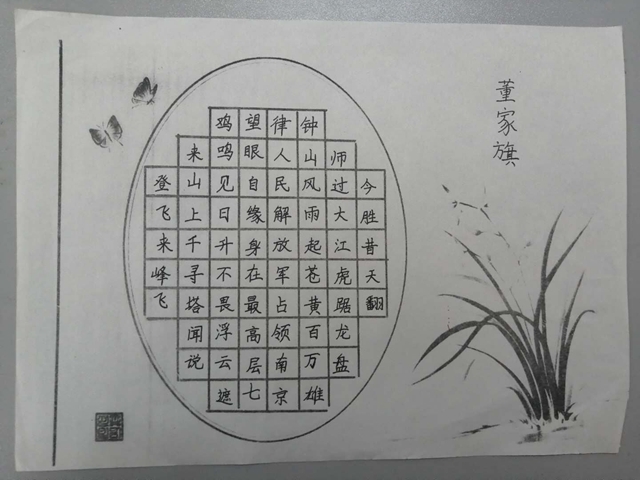 登飞来峰飞
来山上千寻塔闻说
鸡鸣见日升不畏浮云遮
望眼自缘身在最高层七
律人民解放军占领南京
钟山风雨起苍黄百万雄
师过大江虎踞龙盘
今胜昔天翻
董家旗